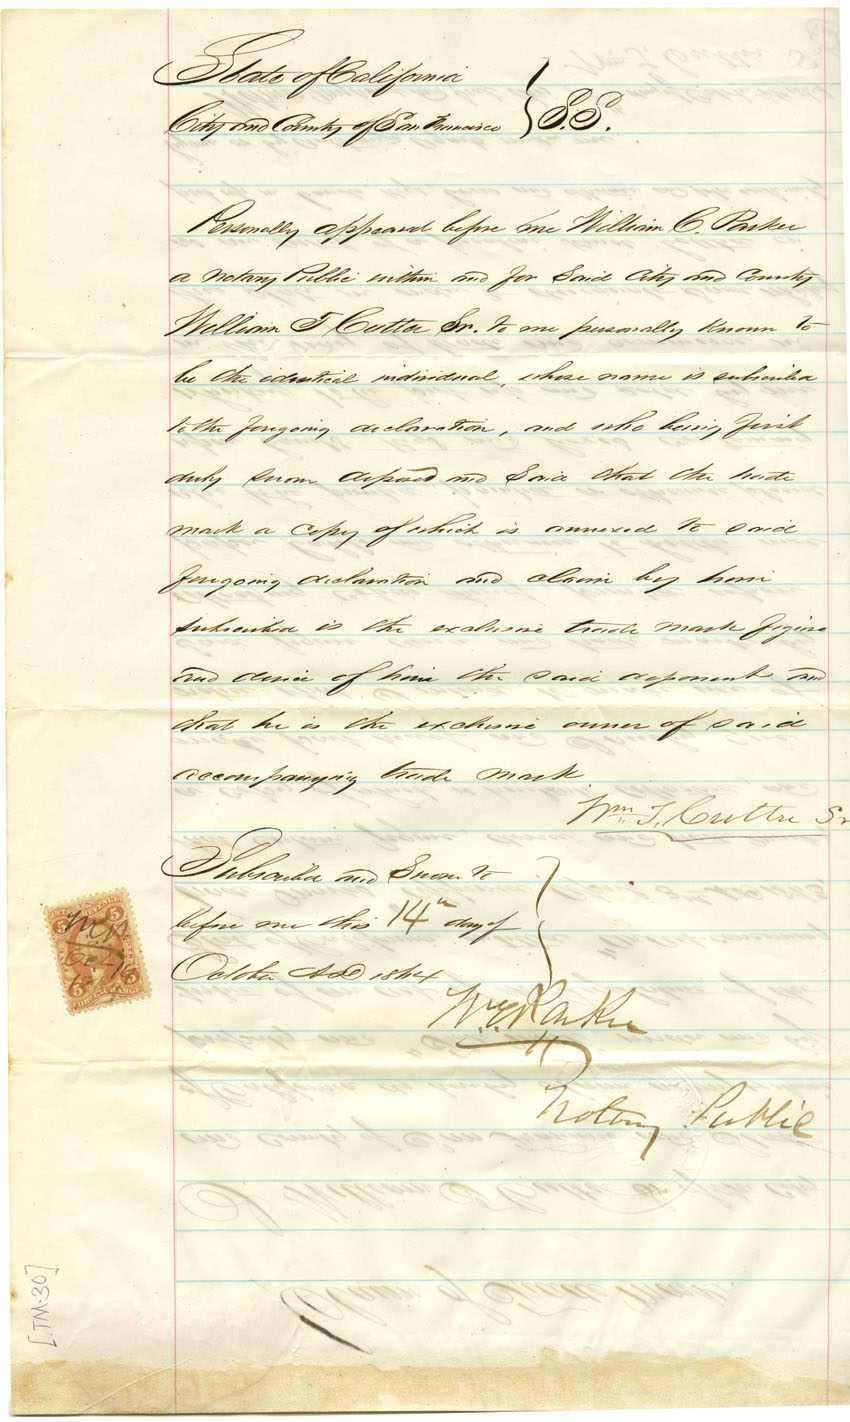 State of California
City and County of San Francisco } S.S.
Personally appeared before me William C. Parker
a notary Public within and for Said City and County
William T Cutter Sr. to me personally known to
be the identical individual, whose name is subscribed
to the foregoing declaration, and who being first
duly sworn deposed and Said that the trade
mark a copy of which is annexed to said
foregoing declaration and claim by him
subscribed is the exclusive trade mark figure
and device of him the said deponent and
that he is the exclusive owner of said
accompanying trade mark
Wm T. Cutter Sr
Subscribed and Sworn to
before me this 14th day of
October AD 1864
Wm C. Parker
Notary Public
5 5
[TM·30]